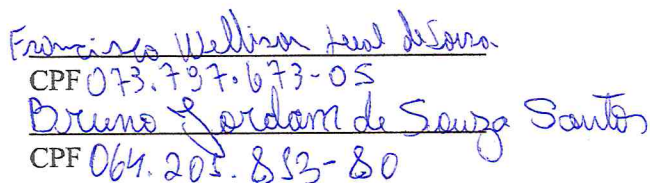 Francisco Wellison Leal de Sousa
CPF 073.797.673-05
Bruno Jordam de Souza Santos
CPF 064.205.853-80